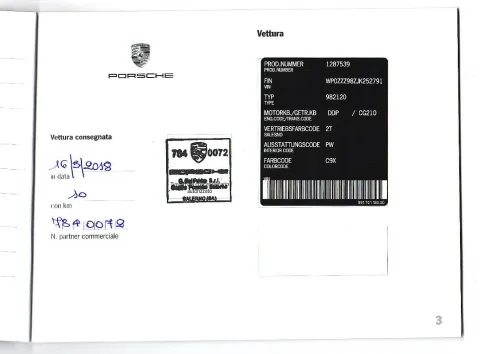 Vettura
PORSCHE
PROD.NUMMER 1287539
PROD.NUMBER
FIN WP0ZZZ98ZJK252791
VIN
TYP 982120
TYPE
MOTORKB./GETR.KB DDP / CG210
ENG.CODE/TRANS.CODE
VERTRIEBSFARBCODE 2T
SALESNO
AUSSTATTUNGSCODE PW
INTERIOR CODE
FARBCODE C9X
COLORCODE
Vettura consegnata
16/3/2018
in data
10
con km
784 0072
N. partner commerciale
784 0072
SALERNO (SA)
3